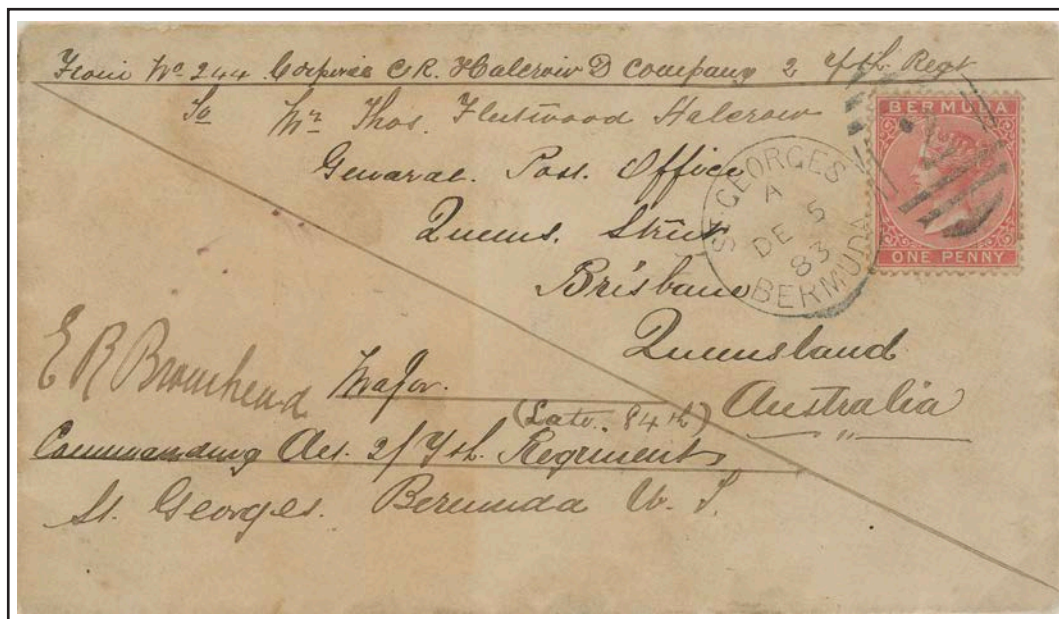 From No 244 Corporal C R. Halcrow D Company 2 Yth. Regt
To Mr. Thos. Fleetwood Halcrow
General. Post. Office
Queens. Street
Brisbane
Queensland
Australia
BERMUDA
ONE PENNY
ST. GEORGES
A
DE 5
83
BERMUDA
E R Bromhead Major.
(Late. 84th)
Commanding Det. 2/Yth. Regiment
St. Georges. Bermuda W. I.